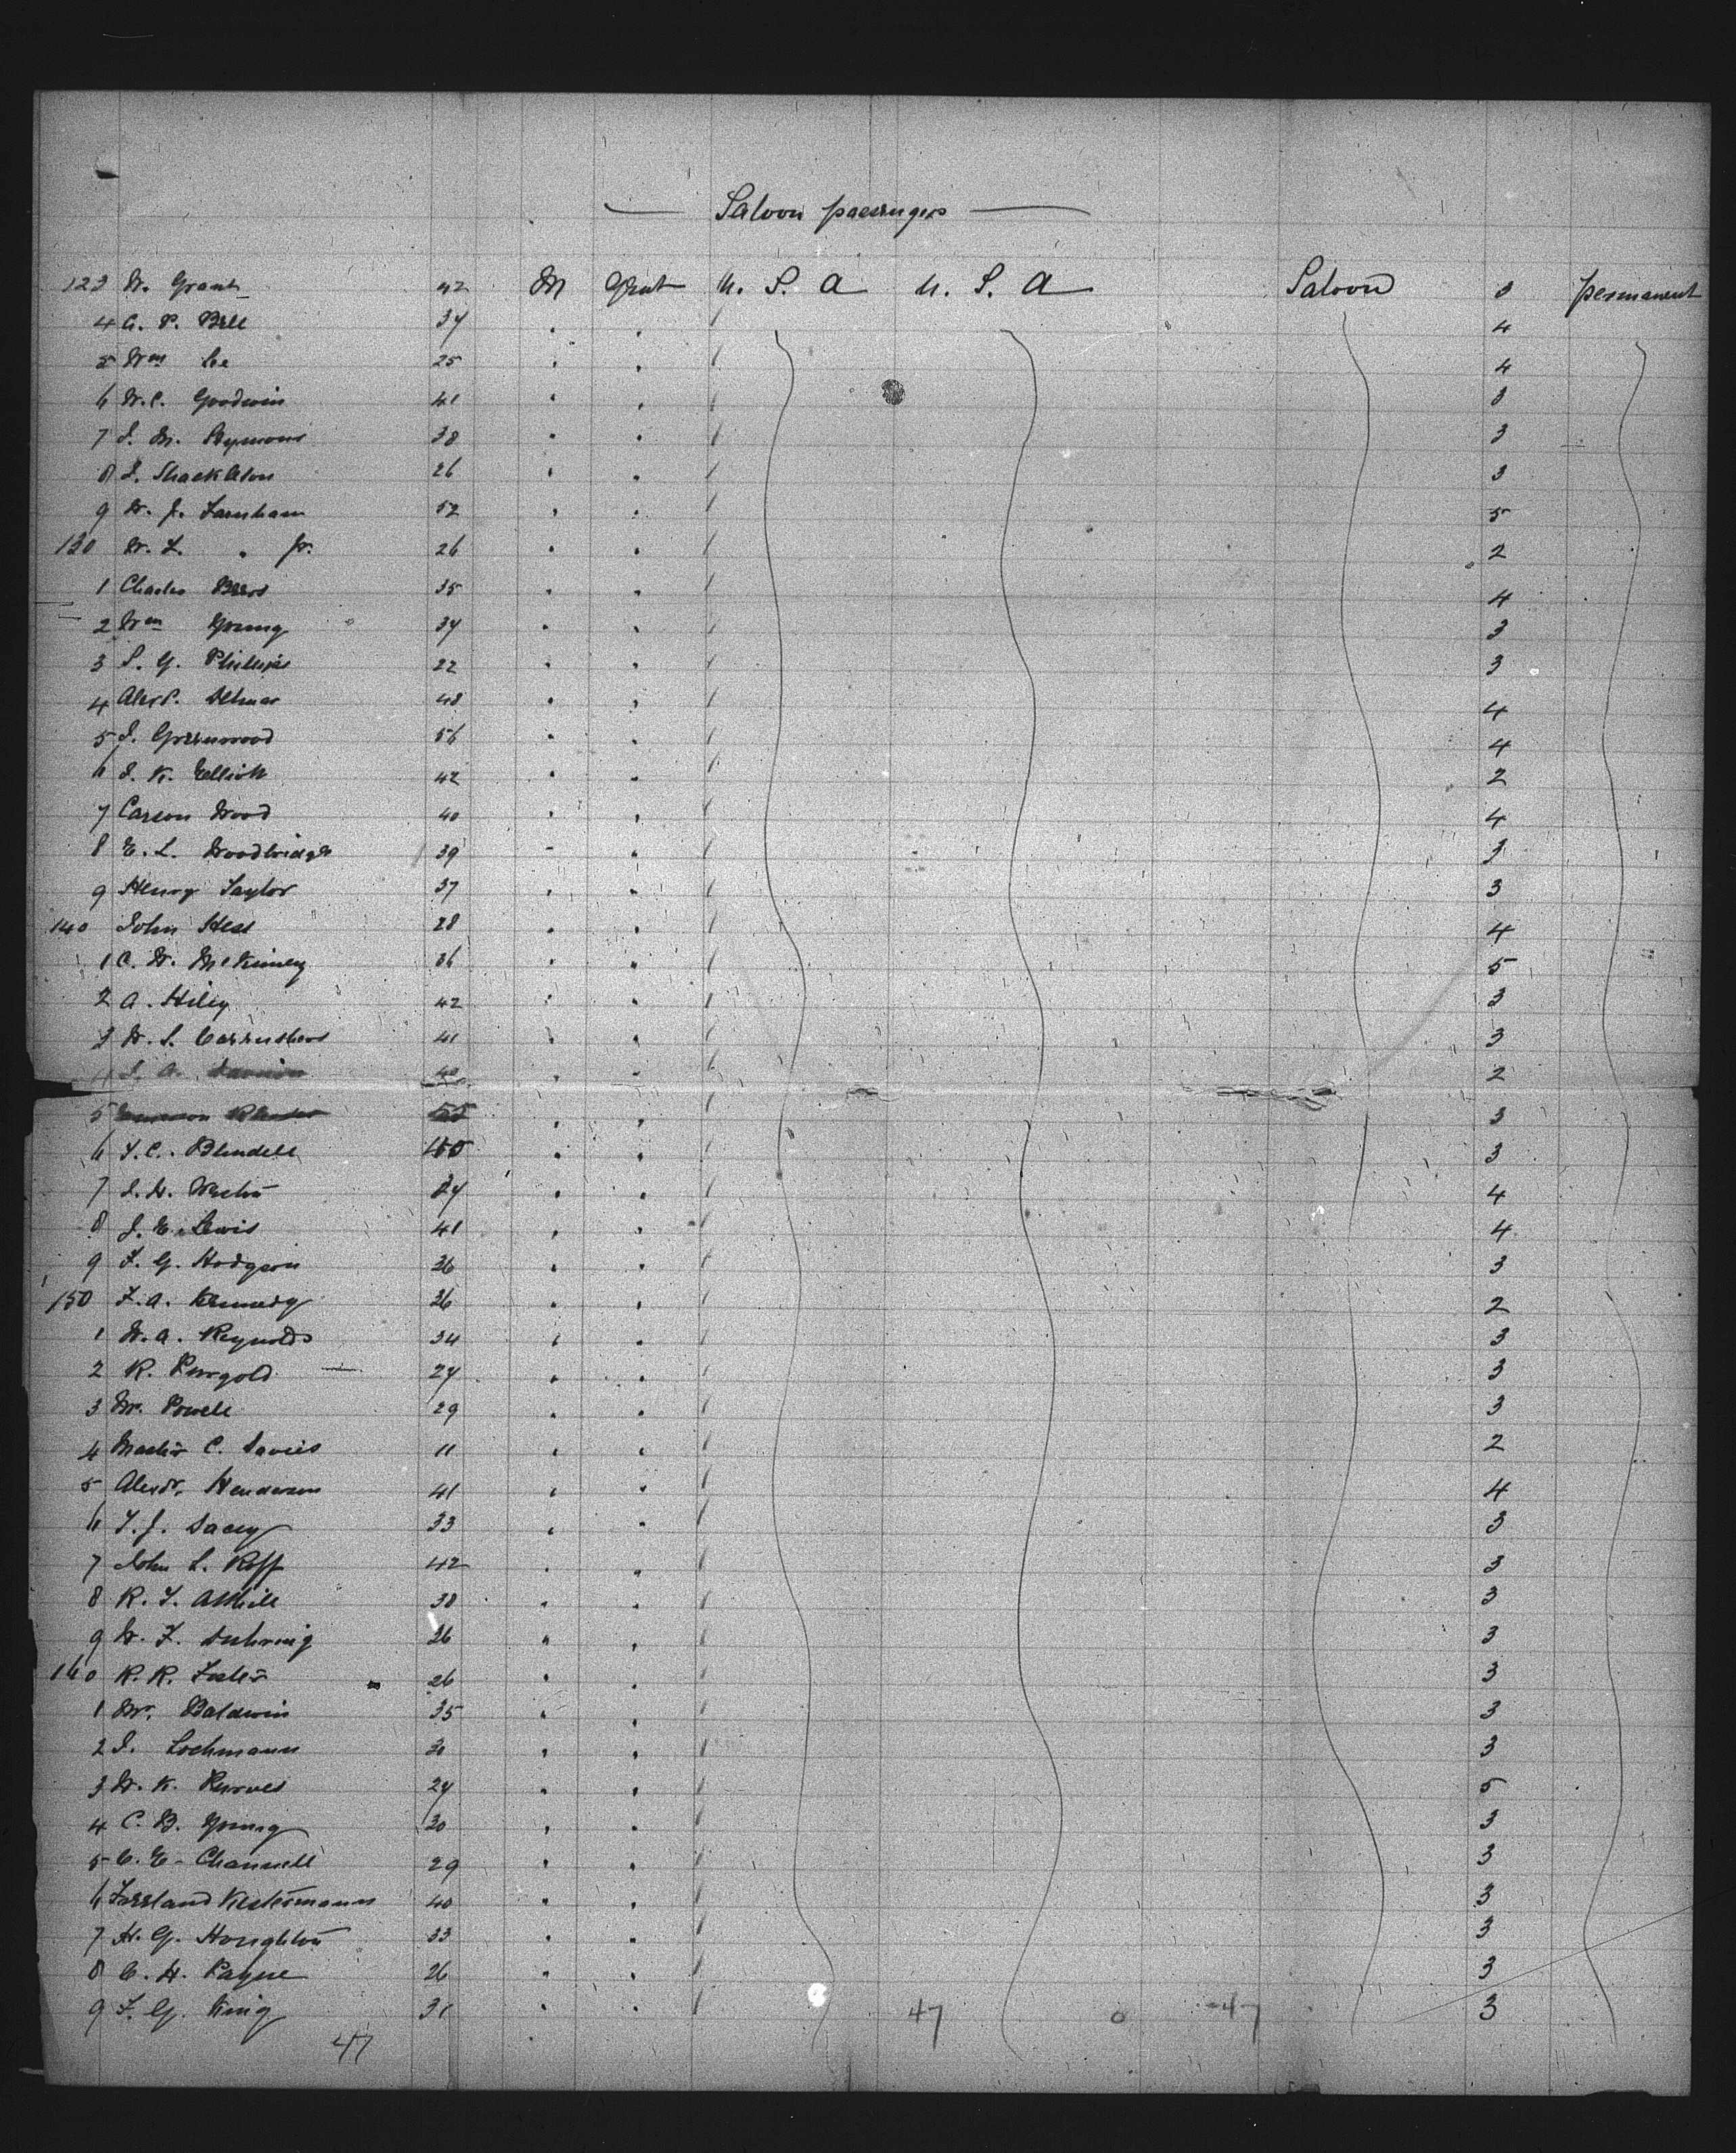 Saloon passengers
123 W. Grant 42 M Gent U. S. A U. S. A Saloon 3 permanent
4 A. P. Bell 34 " " / 4
5 Wm 25 " " / 4
6 W. C. Goodwin 41 " " / 3
7 J. M. 38 " " / 3
8 J. Shackleton 26 " " / 3
9 W. J. Farnham 52 " " / 5
130 W. L. " Jr. 26 " " / 2
1 Charles Beers 35 " " / 4
2 Wm Young 34 " " / 3
3 S. G. Phillips 22 " " / 3
4 48 " " / 4
5 J. Greenwood 56 " " / 4
6 J. K. Elliott 42 " " / 2
7 Carson Wood 40 " " / 4
8 E. L. Woodbridge 39 " " 3
9 Henry Taylor 37 " " / 3
140 John Hess 28 " " / 4
1 C. W. McKinney 36 " " / 5
2 A. Hiley 42 " " / 3
3 W. S. Carruthers 41 " " / 3
4 J. A. 40 " " / 2
5 55 " " / 3
6 Blundell " " / 3
7 24 " " / 4
8 J. E. Lewis 41 " " / 4
9 F. G. Hodgson 36 " " / 3
150 F. A. Kennedy 26 " " / 2
1 W. A. Reynolds 34 " " / 3
2 R. Purgold 24 " " / 3
3 Mr. Powell 29 " " / 3
4 Master C. Davies 11 " " / 2
5 Alexdr. Henderson 41 " " / 4
6 T. J. Lacey 33 " " / 3
7 John L. Roff 42 " " / 3
8 R. T. Athill 38 " " / 3
9 W. F. Duhring 26 " " / 3
160 R. R. 26 " " / 3
1 Mr. Baldwin 35 " " / 3
2 J. Lochmann 30 " " / 3
3 W. K. Purves 24 " " / 5
4 C. B. Young 30 " " / 3
5 C. E. Channell 29 " " / 3
6 Kestermann 40 " " / 3
7 H. G. Houghton 33 " " / 3
8 C. H. Payne 26 " " / 3
9 F. G. King 31 " " / 47 0 47 3
47